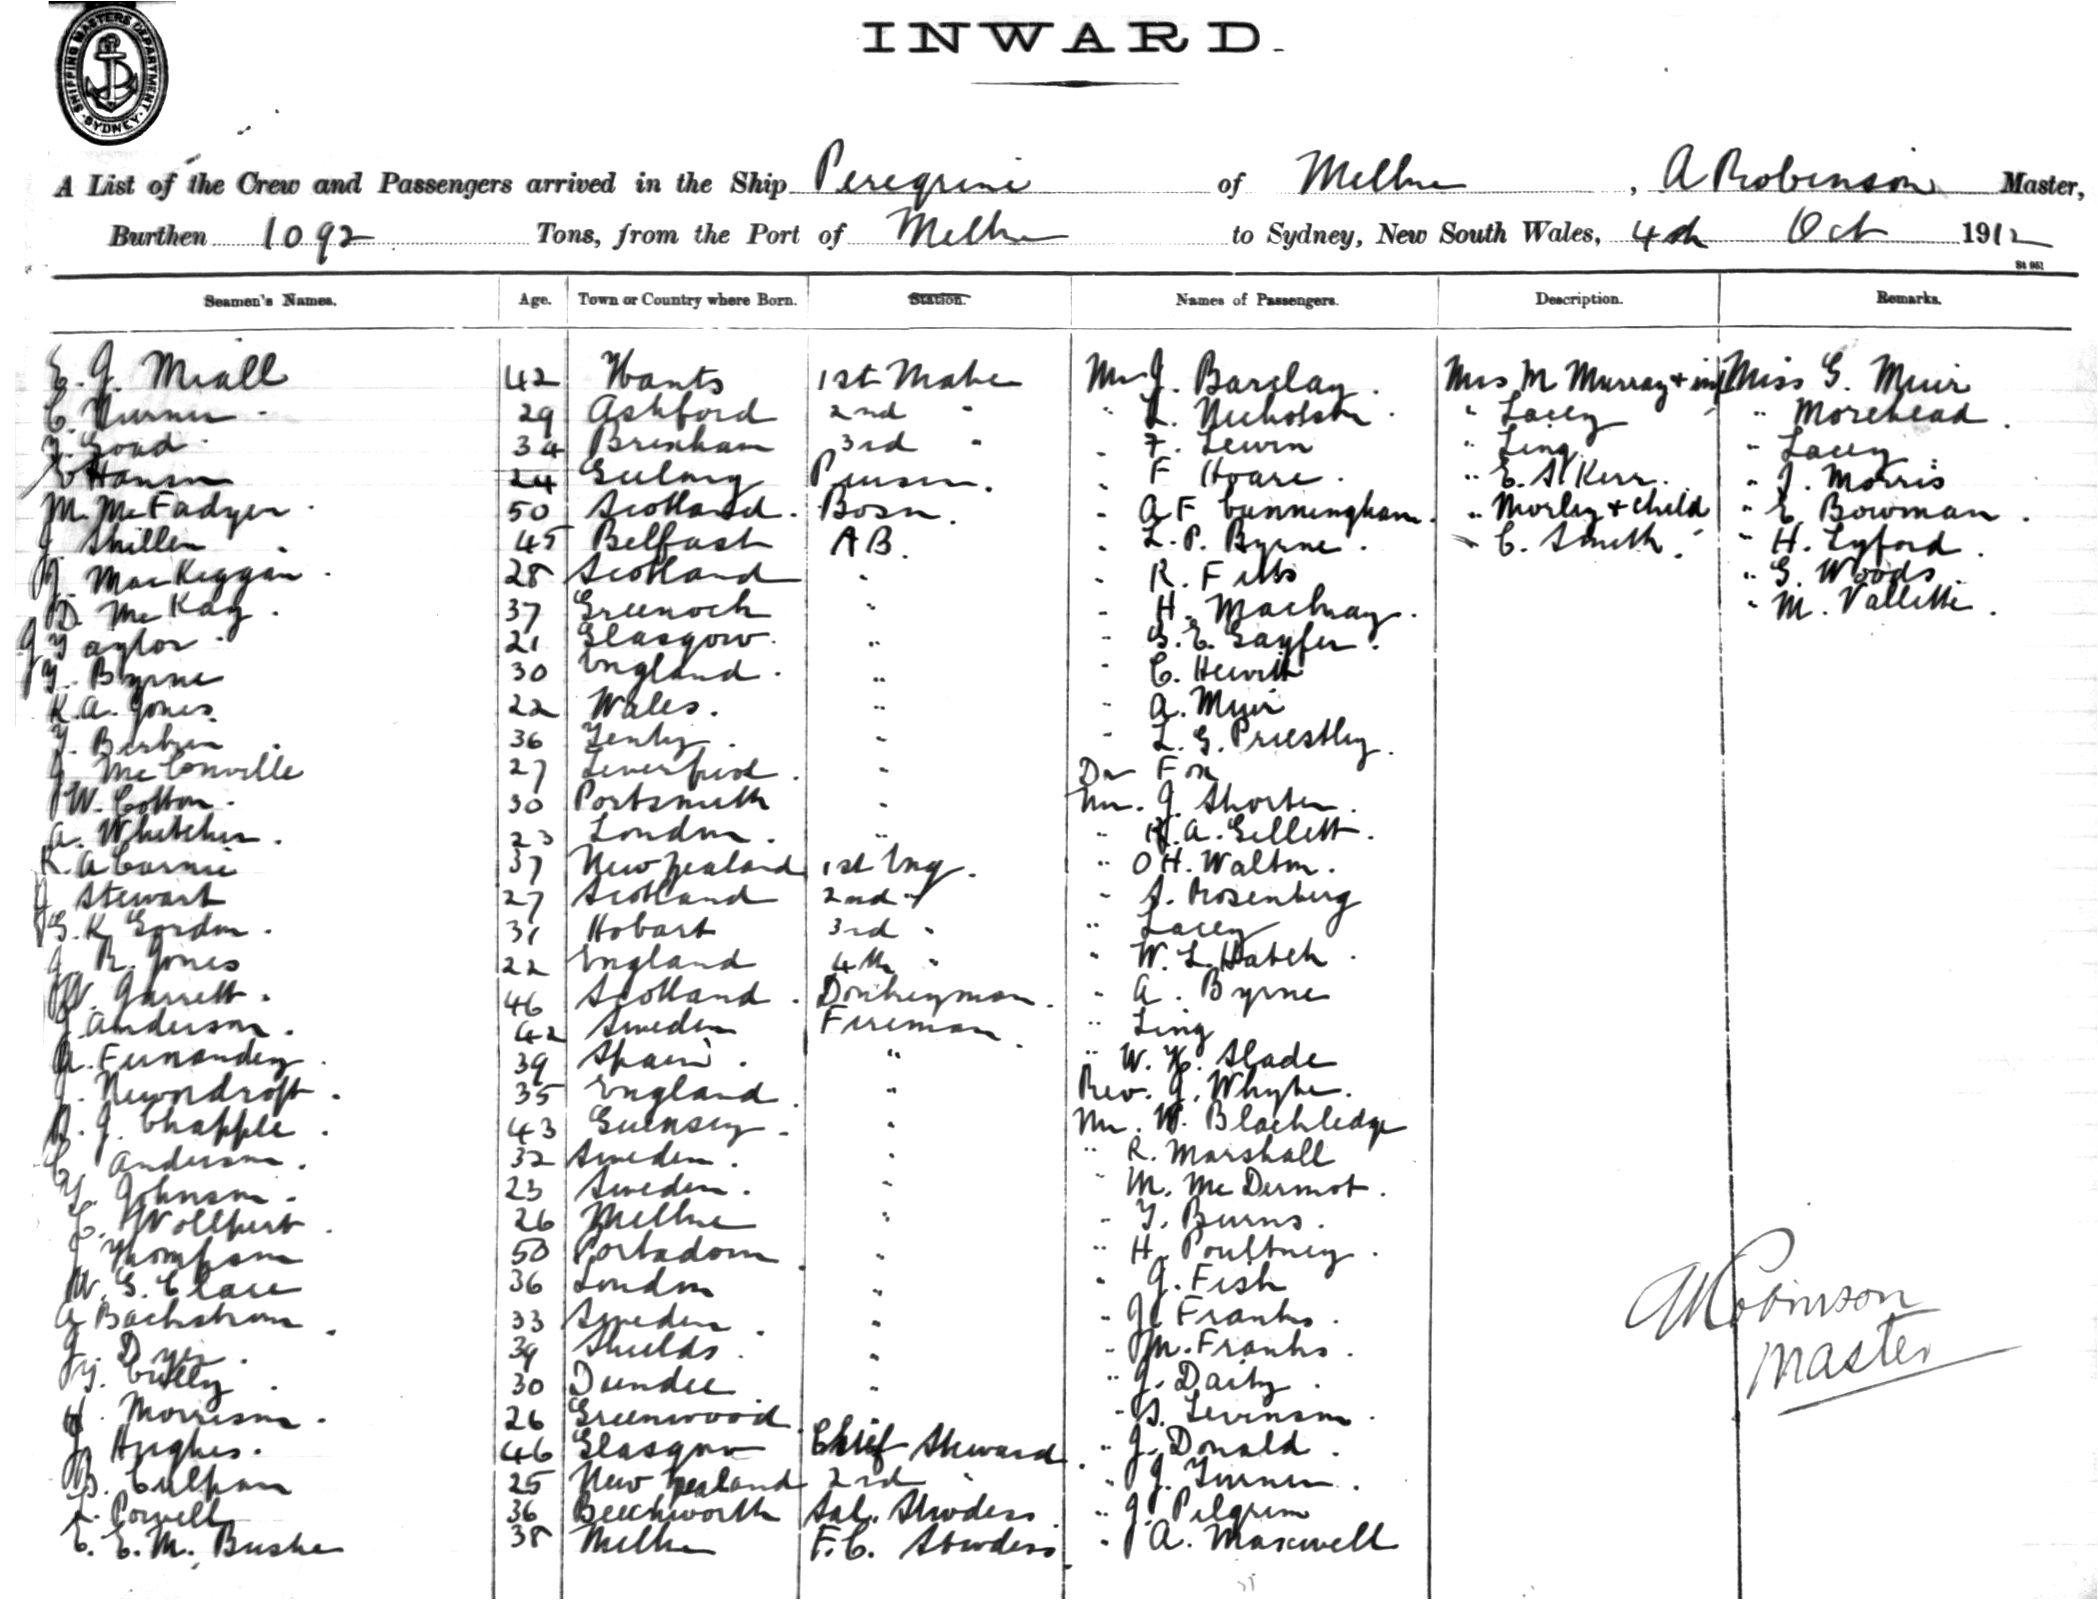 SHIPPING MASTERS DEPARTMENT SYDNEY
INWARD.
A List of the Crew and Passengers arrived in the Ship Peregrine of Melbne, A Robinson Master,
Burthen 1092 Tons, from the Port of Melbne to Sydney, New South Wales, 4th Oct 1912
St 951
Seamen's Names. Age. Town or Country where Born. Station. Names of Passengers. Description. Remarks.
E. J. Miall 42 Hants 1st Mate Mr J. Barclay. Mrs M Murray + inf Miss G. Muir
C. Turner 29 Ashford 2nd " " L. Nicholson " Lacey " Morehead.
Goad 34 Brixham 3rd " " F. Lewin " Ling " Lacey
Hansen 24 Geelong " F Hoare. " E. S. Kerr. " J. Morris
M. McFadyen 50 Scotland. Bosn. " A F Cunningham. " Morley + child " E Bowman.
J Skillen 45 Belfast AB. " L. P. Byrne. " C. Smith. " H. Lyford.
MacKeggan 28 Scotland " " R. Fitts " G. Woods.
D. McKay. 37 Greenock " " H. Mackay. " M. Vallette.
J Taylor 21 Glasgow. " " G. E. Gayfer.
Byrne 30 England. " " C. Hewitt
R. A. Jones 22 Wales. " " A. Muir
36 Tenby. " " L. G. Priestley.
J. McConville 27 Liverpool. " Dr Fox
W. Cotton. 30 Portsmouth " Mr. J. Shorter.
A. Whitcher. 23 London. " " R. A. Gillett.
R. A Carnie 37 New Zealand 1st Eng. " O H. Walton.
J Stewart 27 Scotland 2nd " " S. Rosenberg
G. K Gordon. 31 Hobart 3rd " " Lacey
J. R. Jones 22 England 4th " " W. L. Hatch.
W. Garrett. 46 Scotland. Donkeyman. " A. Byrne
J. Anderson. 42 Sweden Fireman. " Ling
A. Fernandez. 39 Spain. " " W. H. Slade
35 England. " Rev. J. Whyte.
R. J. Chapple. 43 Guernsey. " Mr. W. Blackledge
C. Anderson. 32 Sweden. " " R. Marshall
Johnson. 23 Sweden. " " M. McDermot.
C. Wollpert. 26 Melbne " " T. Burns.
J Thompson 50 Portadown " " H. Poultney.
W. G. Clace 36 London " " J. Fish
A Backstrom. 33 Sweden. " " J. Franks.
J. Dyer. 39 Shields. " " M. Franks.
Cully. 30 Dundee " " J. Daity.
Morrison. 26 Greenwood " S. Levinson.
J. Hughes. 46 Glasgow Chief Steward. " J. Donald.
B. Culpan 25 New Zealand 2nd " " J. Turner.
Powell 36 Beechworth Sal. Stwdess. " J. Pilgrim
E. E. M. Buske 38 Melbne F.C. Stwdess " A. Maxwell
A Robinson
Master